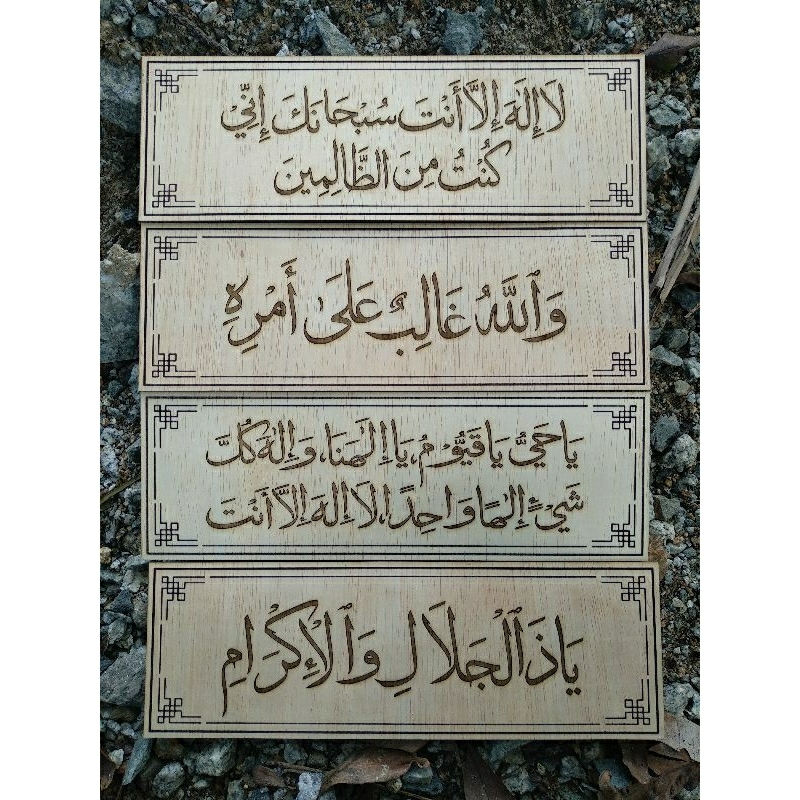 لَا إِلٰهَ إِلَّا أَنْتَ سُبْحَانَكَ إِنِّيْ
كُنْتُ مِنَ الظَّالِمِينَ
وَٱللَّهُ غَالِبٌ عَلَىٰ أَمْرِهِ
يَاحَيُّ يَاقَيُّوْمُ، يَاإِلٰهَنَا، وَإِلٰهَ كُلِّ
شَيْءٍ إِلٰهًا وَاحِدًا، لَا إِلٰهَ إِلَّا أَنْتَ
يَاذَ ٱلْجَلَالِ وَٱلْإِكْرَامِ